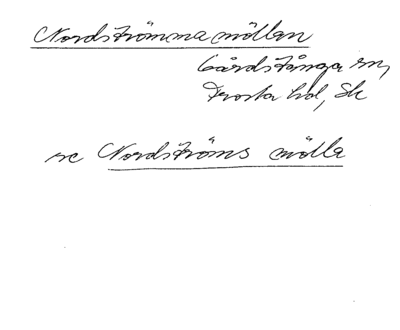 Nordströmma möllan
Gårdstånga sn,
Frosta hd, Sk
se Nordströms mölla